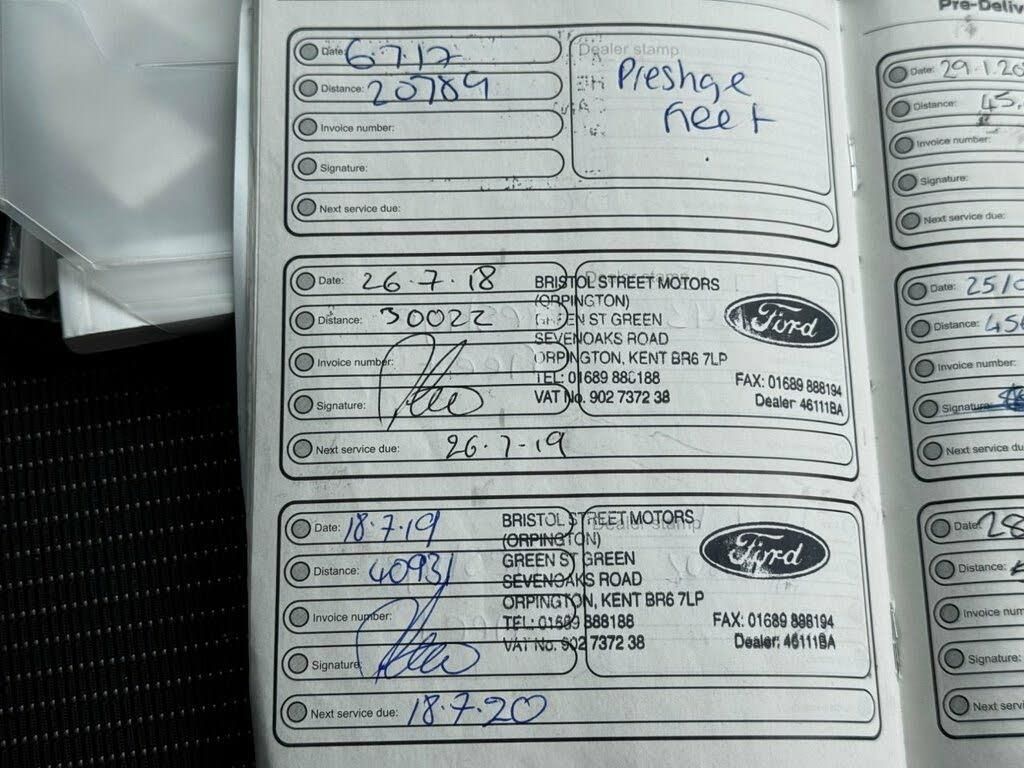 Date: 6.7.17
Dealer stamp
Distance: 20789
Prestige
Fleet
Invoice number:
Signature:
Next service due:
Date: 26.7.18
Dealer stamp
Distance: 30022
Invoice number:
Signature:
BRISTOL STREET MOTORS
(ORPINGTON)
GREEN ST GREEN
SEVENOAKS ROAD
ORPINGTON, KENT BR6 7LP
TEL: 01689 888188
VAT No. 902 7372 38
Ford
FAX: 01689 888194
Dealer 46111BA
Next service due: 26.7.19
Date: 18.7.19
Dealer stamp
Distance: 40931
Invoice number:
Signature:
BRISTOL STREET MOTORS
(ORPINGTON)
GREEN ST GREEN
SEVENOAKS ROAD
ORPINGTON, KENT BR6 7LP
TEL: 01689 888188
VAT No. 902 7372 38
Ford
FAX: 01689 888194
Dealer: 46111BA
Next service due: 18.7.20
Pre-Deliv
Date: 29.1.20
Distance: 45,
Invoice number:
Signature:
Next service due:
Date: 25/0
Distance: 456
Invoice number:
Signature:
Next service du
Date: 28
Distance:
Invoice num
Signature:
Next servi